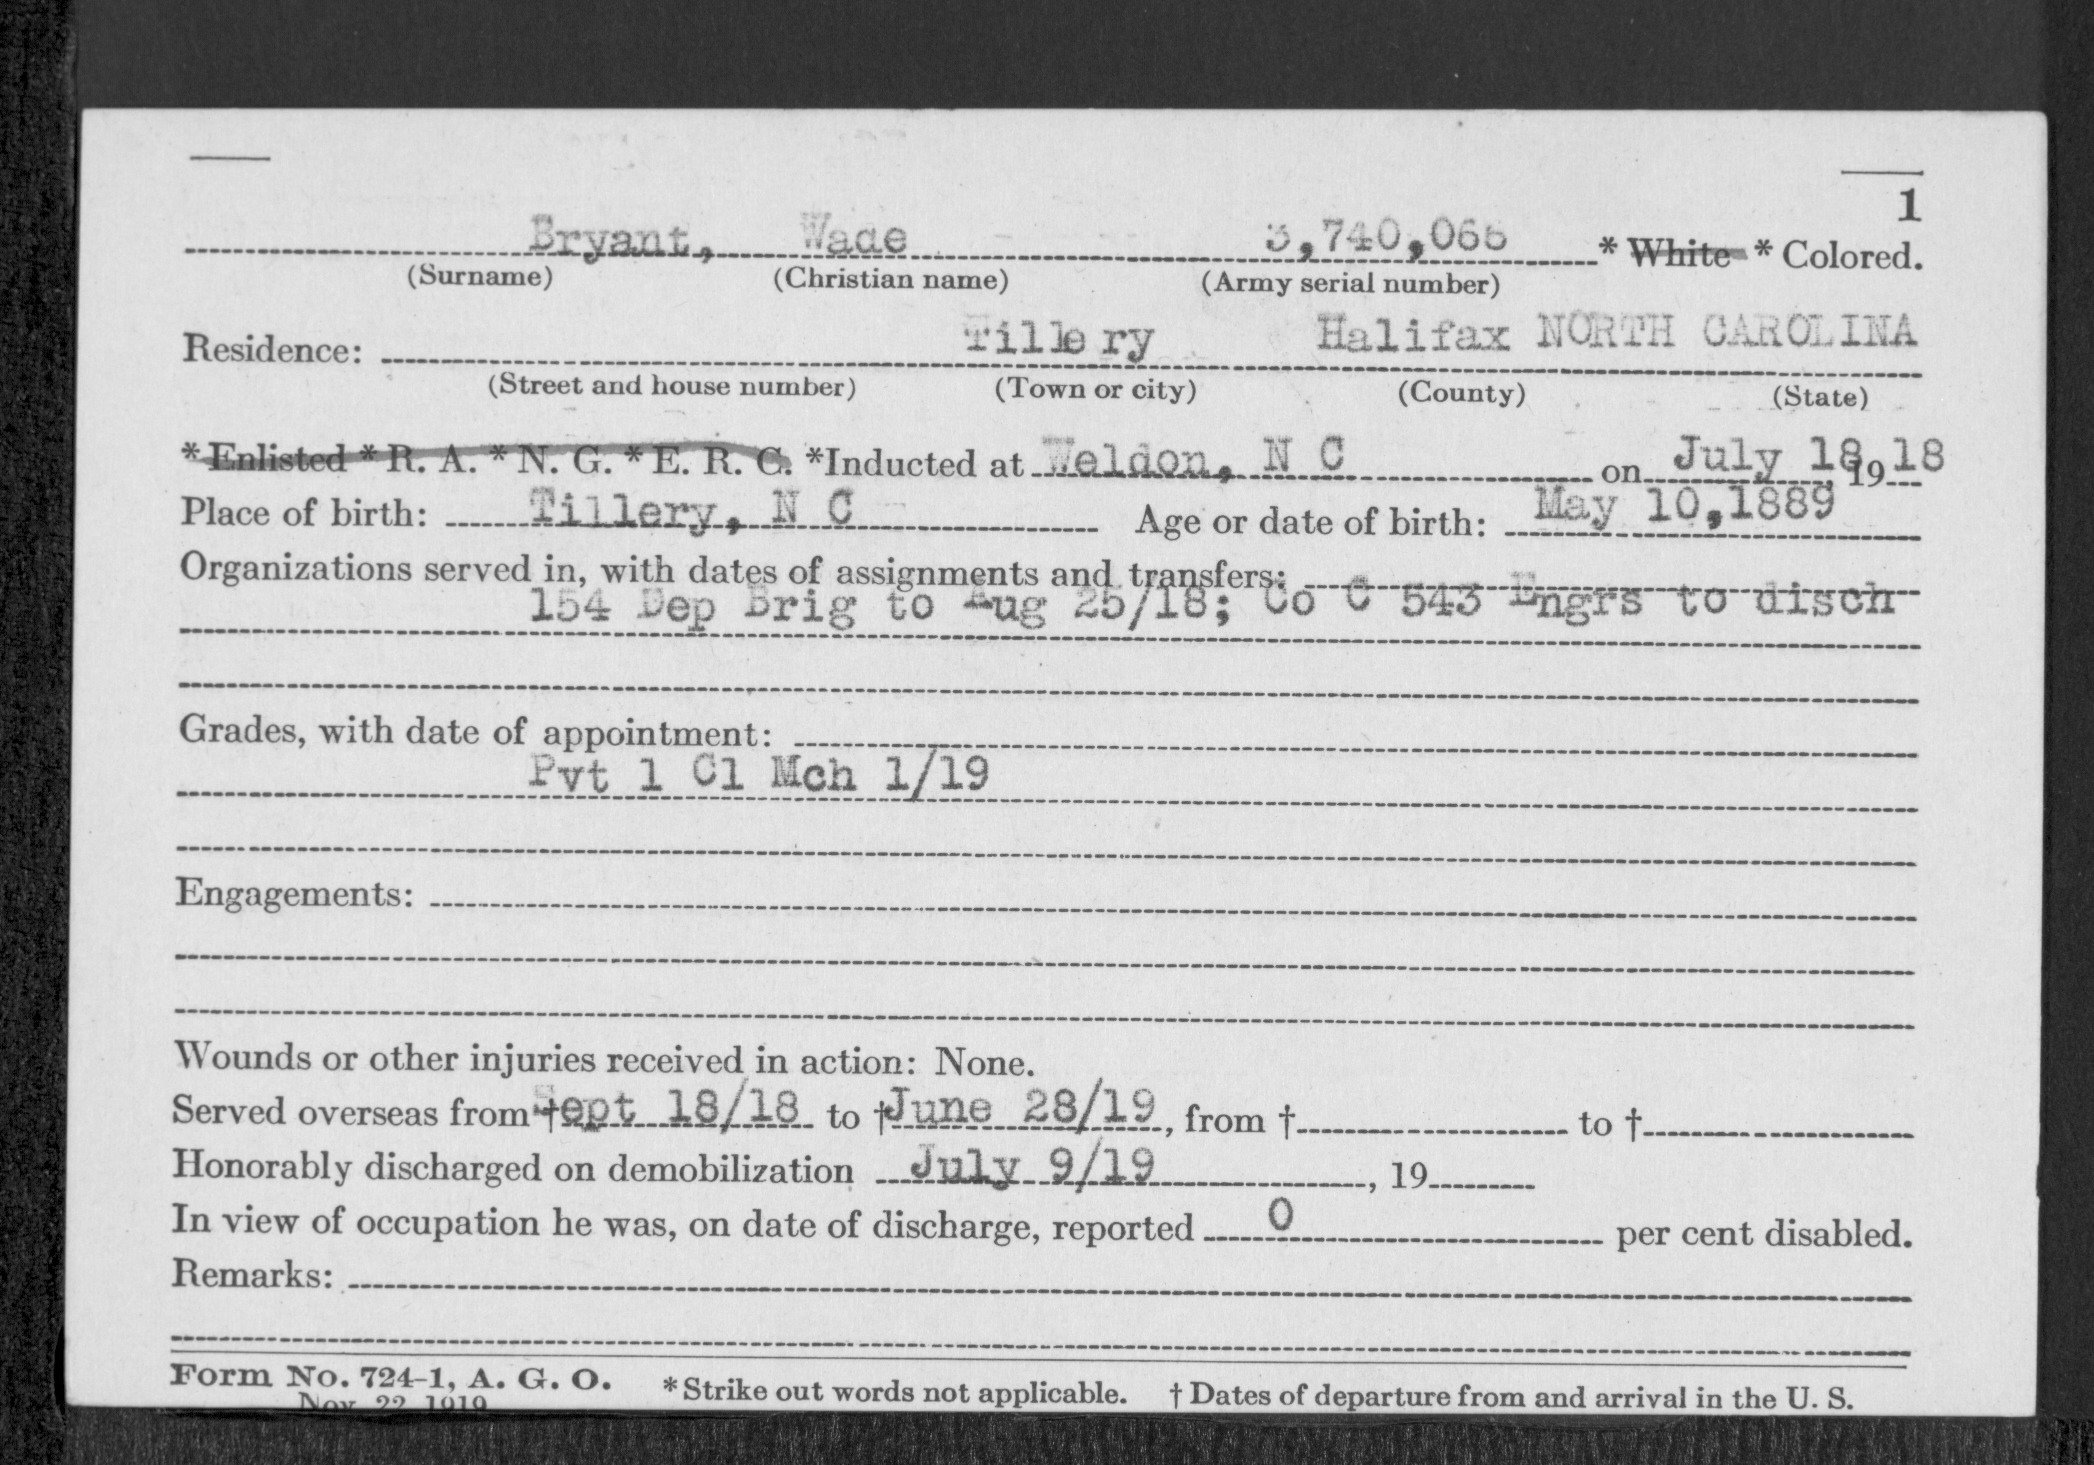 1
Bryant, Wade 3,740,066 * White * Colored.
(Surname) (Christian name) (Army serial number)
Residence: Tillery Halifax NORTH CAROLINA
(Street and house number) (Town or city) (County) (State)
* Enlisted * R. A. * N. G. * E. R. C. *Inducted at Weldon, N C on July 18, 1918
Place of birth: Tillery, N C Age or date of birth: May 10,1889
Organizations served in, with dates of assignments and transfers:
154 Dep Brig to Aug 25/18; Co C 543 Engrs to disch
Grades, with date of appointment:
Pvt 1 Cl Mch 1/19
Engagements:
Wounds or other injuries received in action: None.
Served overseas from † Sept 18/18 to † June 28/19, from † to †
Honorably discharged on demobilization July 9/19, 19
In view of occupation he was, on date of discharge, reported 0 per cent disabled.
Remarks:
Form No. 724-1, A. G. O. * Strike out words not applicable. † Dates of departure from and arrival in the U. S.
Nov. 22, 1919